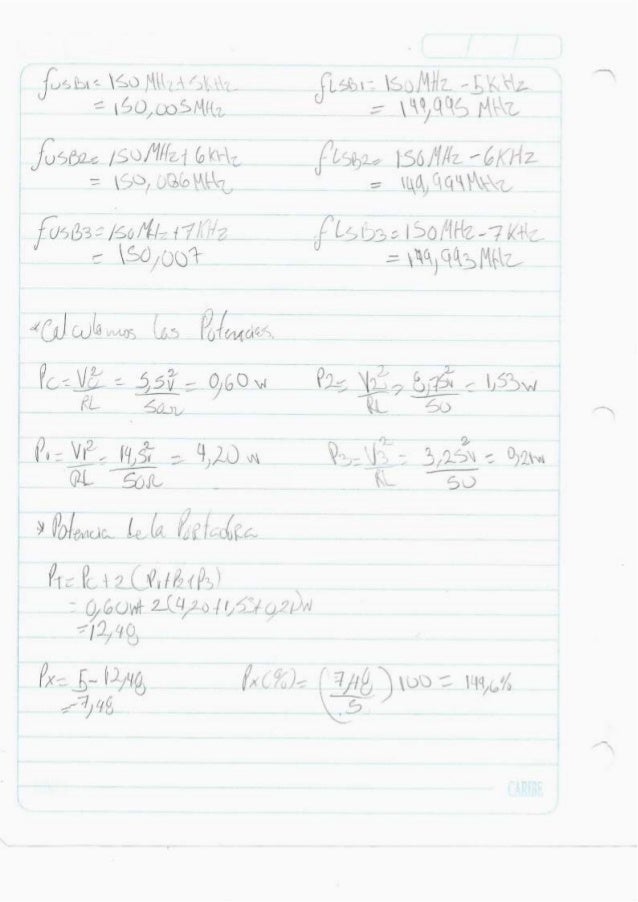 fUSB1= 150 MHz+5KHz fLSB1= 150MHz -5KHz
= 150,005MHz = 149,995 MHz
fUSB2= 150MHz+ 6KHz fLSB2= 150MHz -6KHz
= 150,006MHz = 149,994MHz
fUSB3= 150MHz+7KHz fLSB3=150MHz-7KHz
= 150,007 =149,993MHz
*Calculamos las Potencias.
Pc= Vc²/RL = 5,5v²/50Ω = 0,60 w P2= V2²/RL = 8,75v²/50 = 1,53w
P1= V1²/RL = 14,5²v/50Ω = 4,20 w P3= V3²/RL = 3,25v²/50 = 0,21w
* Potencia de la Portadora
PT= Pc+2(P1+P2+P3)
= 0,60w+ 2(4,20+1,53+0,21)w
=12,48
Px= 5-12,48 Px(%)= (7,48/5)100 = 149,6%
=7,48
CARIBE